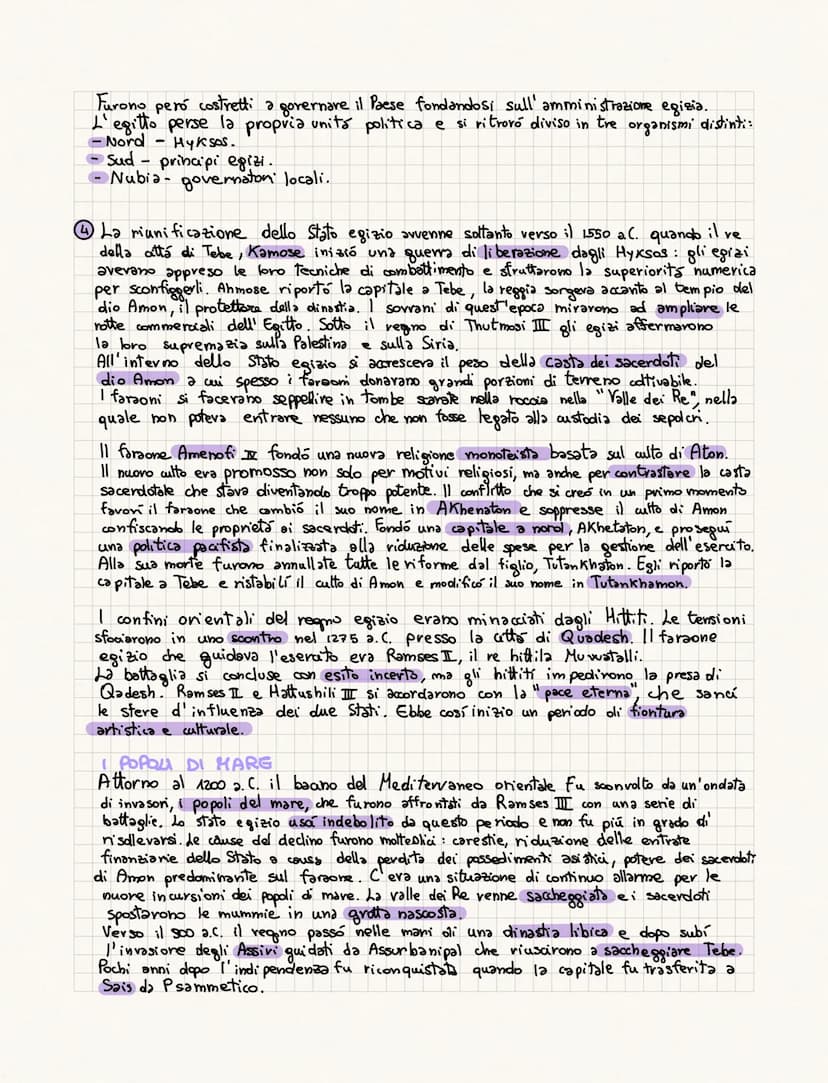 Furono però costretti a governare il Paese fondandosi sull'amministrazione egizia.
L'egitto perse la propria unità politica e si ritrovò diviso in tre organismi distinti:
- Nord - Hyksos.
- Sud - principi egizi.
- Nubia - governatori locali.
4 La riunificazione dello Stato egizio avvenne soltanto verso il 1550 a.C. quando il re
della città di Tebe, Kamose iniziò una guerra di liberazione dagli Hyksos: gli egizi
avevano appreso le loro tecniche di combattimento e sfruttarono la superiorità numerica
per sconfiggerli. Ahmose riportò la capitale a Tebe, la reggia sorgeva accanto al tempio del
dio Amon, il protettore della dinastia. I sovrani di quest'epoca mirarono ad ampliare le
rotte commerciali dell'Egitto. Sotto il regno di Thutmosi III gli egizi affermarono
la loro supremazia sulla Palestina e sulla Siria.
All'interno dello Stato egizio si accresceva il peso della casta dei sacerdoti del
dio Amon a cui spesso i faraoni donavano grandi porzioni di terreno coltivabile.
I faraoni si facevano seppellire in tombe scavate nella roccia nella "Valle dei Re", nella
quale non poteva entrare nessuno che non fosse legato alla custodia dei sepolcri.
Il faraone Amenofi IV fondò una nuova religione monoteista basata sul culto di Aton.
Il nuovo culto era promosso non solo per motivi religiosi, ma anche per contrastare la casta
sacerdotale che stava diventando troppo potente. Il conflitto che si creò in un primo momento
favorì il faraone che cambiò il suo nome in AKhenaton e soppresse il culto di Amon
confiscando le proprietà ai sacerdoti. Fondò una capitale a nord, AKhetaton, e proseguì
una politica pacifista finalizzata alla riduzione delle spese per la gestione dell'esercito.
Alla sua morte furono annullate tutte le riforme dal figlio, TutanKhaton. Egli riportò la
capitale a Tebe e ristabilì il culto di Amon e modificò il suo nome in Tutankhamon.
I confini orientali del regno egizio erano minacciati dagli Hittiti. Le tensioni
sfociarono in uno scontro nel 1275 a.C. presso la città di Quadesh. Il faraone
egizio che guidava l'esercito era Ramses II, il re hittila Muwatalli.
La battaglia si concluse con esito incerto, ma gli hittiti impedirono la presa di
Qadesh. Ramses II e Hattushili III si accordarono con la "pace eterna", che sancì
le sfere d'influenza dei due Stati. Ebbe così inizio un periodo di fioritura
artistica e culturale.
I POPOLI DI MARE
Attorno al 1200 a.C. il bacino del Mediterraneo orientale fu sconvolto da un'ondata
di invasori, i popoli del mare, che furono affrontati da Ramses III con una serie di
battaglie. Lo stato egizio uscì indebolito da questo periodo e non fu più in grado di
risollevarsi. Le cause del declino furono molteplici: carestie, riduzione delle entrate
finanziarie dello Stato a causa della perdita dei possedimenti asiatici, potere dei sacerdoti
di Amon predominante sul faraone. C'era una situazione di continuo allarme per le
nuove incursioni dei popoli di mare. La valle dei Re venne saccheggiata e i sacerdoti
spostarono le mummie in una grotta nascosta.
Verso il 900 a.C. il regno passò nelle mani di una dinastia libica e dopo subì
l'invasione degli Assiri guidati da Assurbanipal che riuscirono a saccheggiare Tebe.
Pochi anni dopo l'indipendenza fu riconquistata quando la capitale fu trasferita a
Sais da Psammetico.